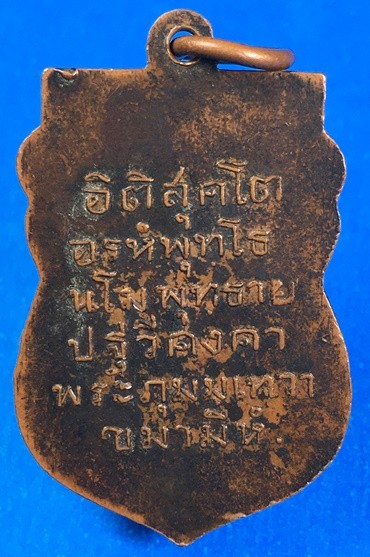 อิติสุคโต
อรหํพุทโธ
นโมพุทธาย
ปฐวีคงคา
พระภุมมเทวา
ขมามิหํ